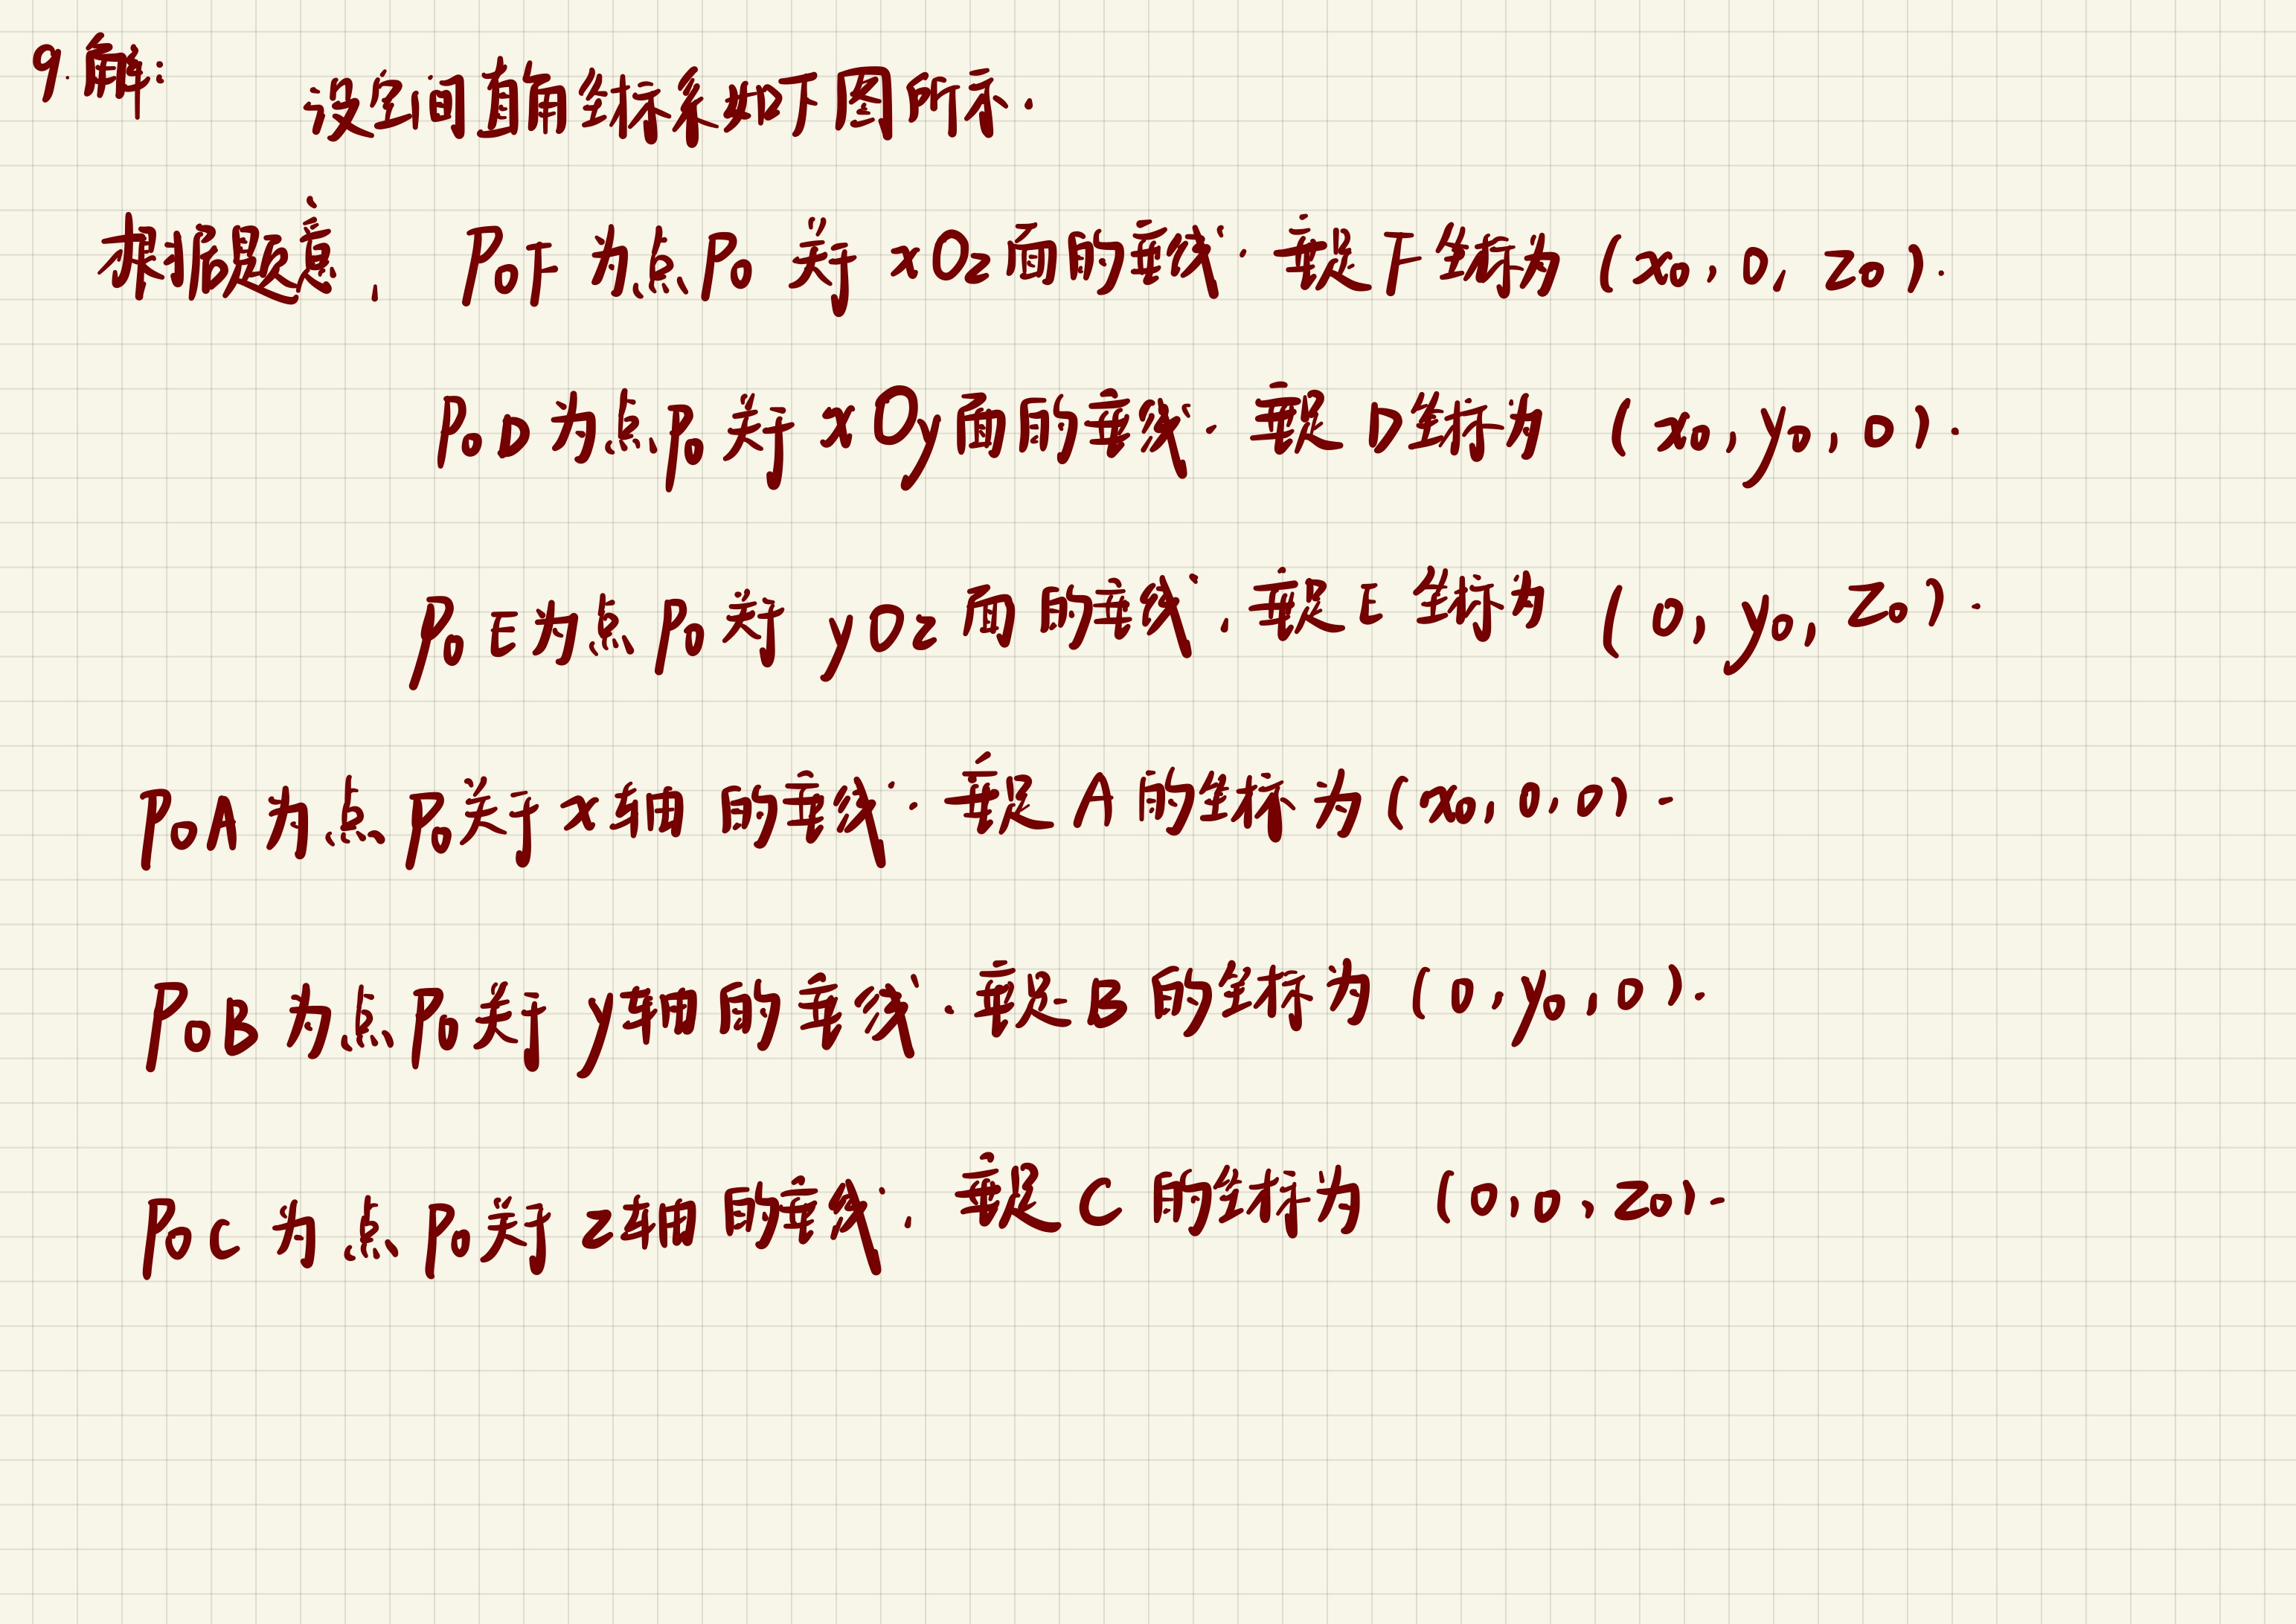 9. 解:
设空间直角坐标系如下图所示.
根据题意, P₀F 为点P₀ 关于 xOz面的垂线. 垂足F坐标为 (x₀, 0, z₀).
P₀D为点P₀关于 xOy面的垂线. 垂足D坐标为 (x₀, y₀, 0).
P₀E为点P₀关于 yOz面的垂线. 垂足E坐标为 (0, y₀, z₀).
P₀A为点P₀关于x轴的垂线. 垂足A的坐标为(x₀, 0, 0).
P₀B为点P₀关于y轴的垂线. 垂足B的坐标为 (0, y₀, 0).
P₀C为点P₀关于z轴的垂线. 垂足C的坐标为 (0, 0, z₀).